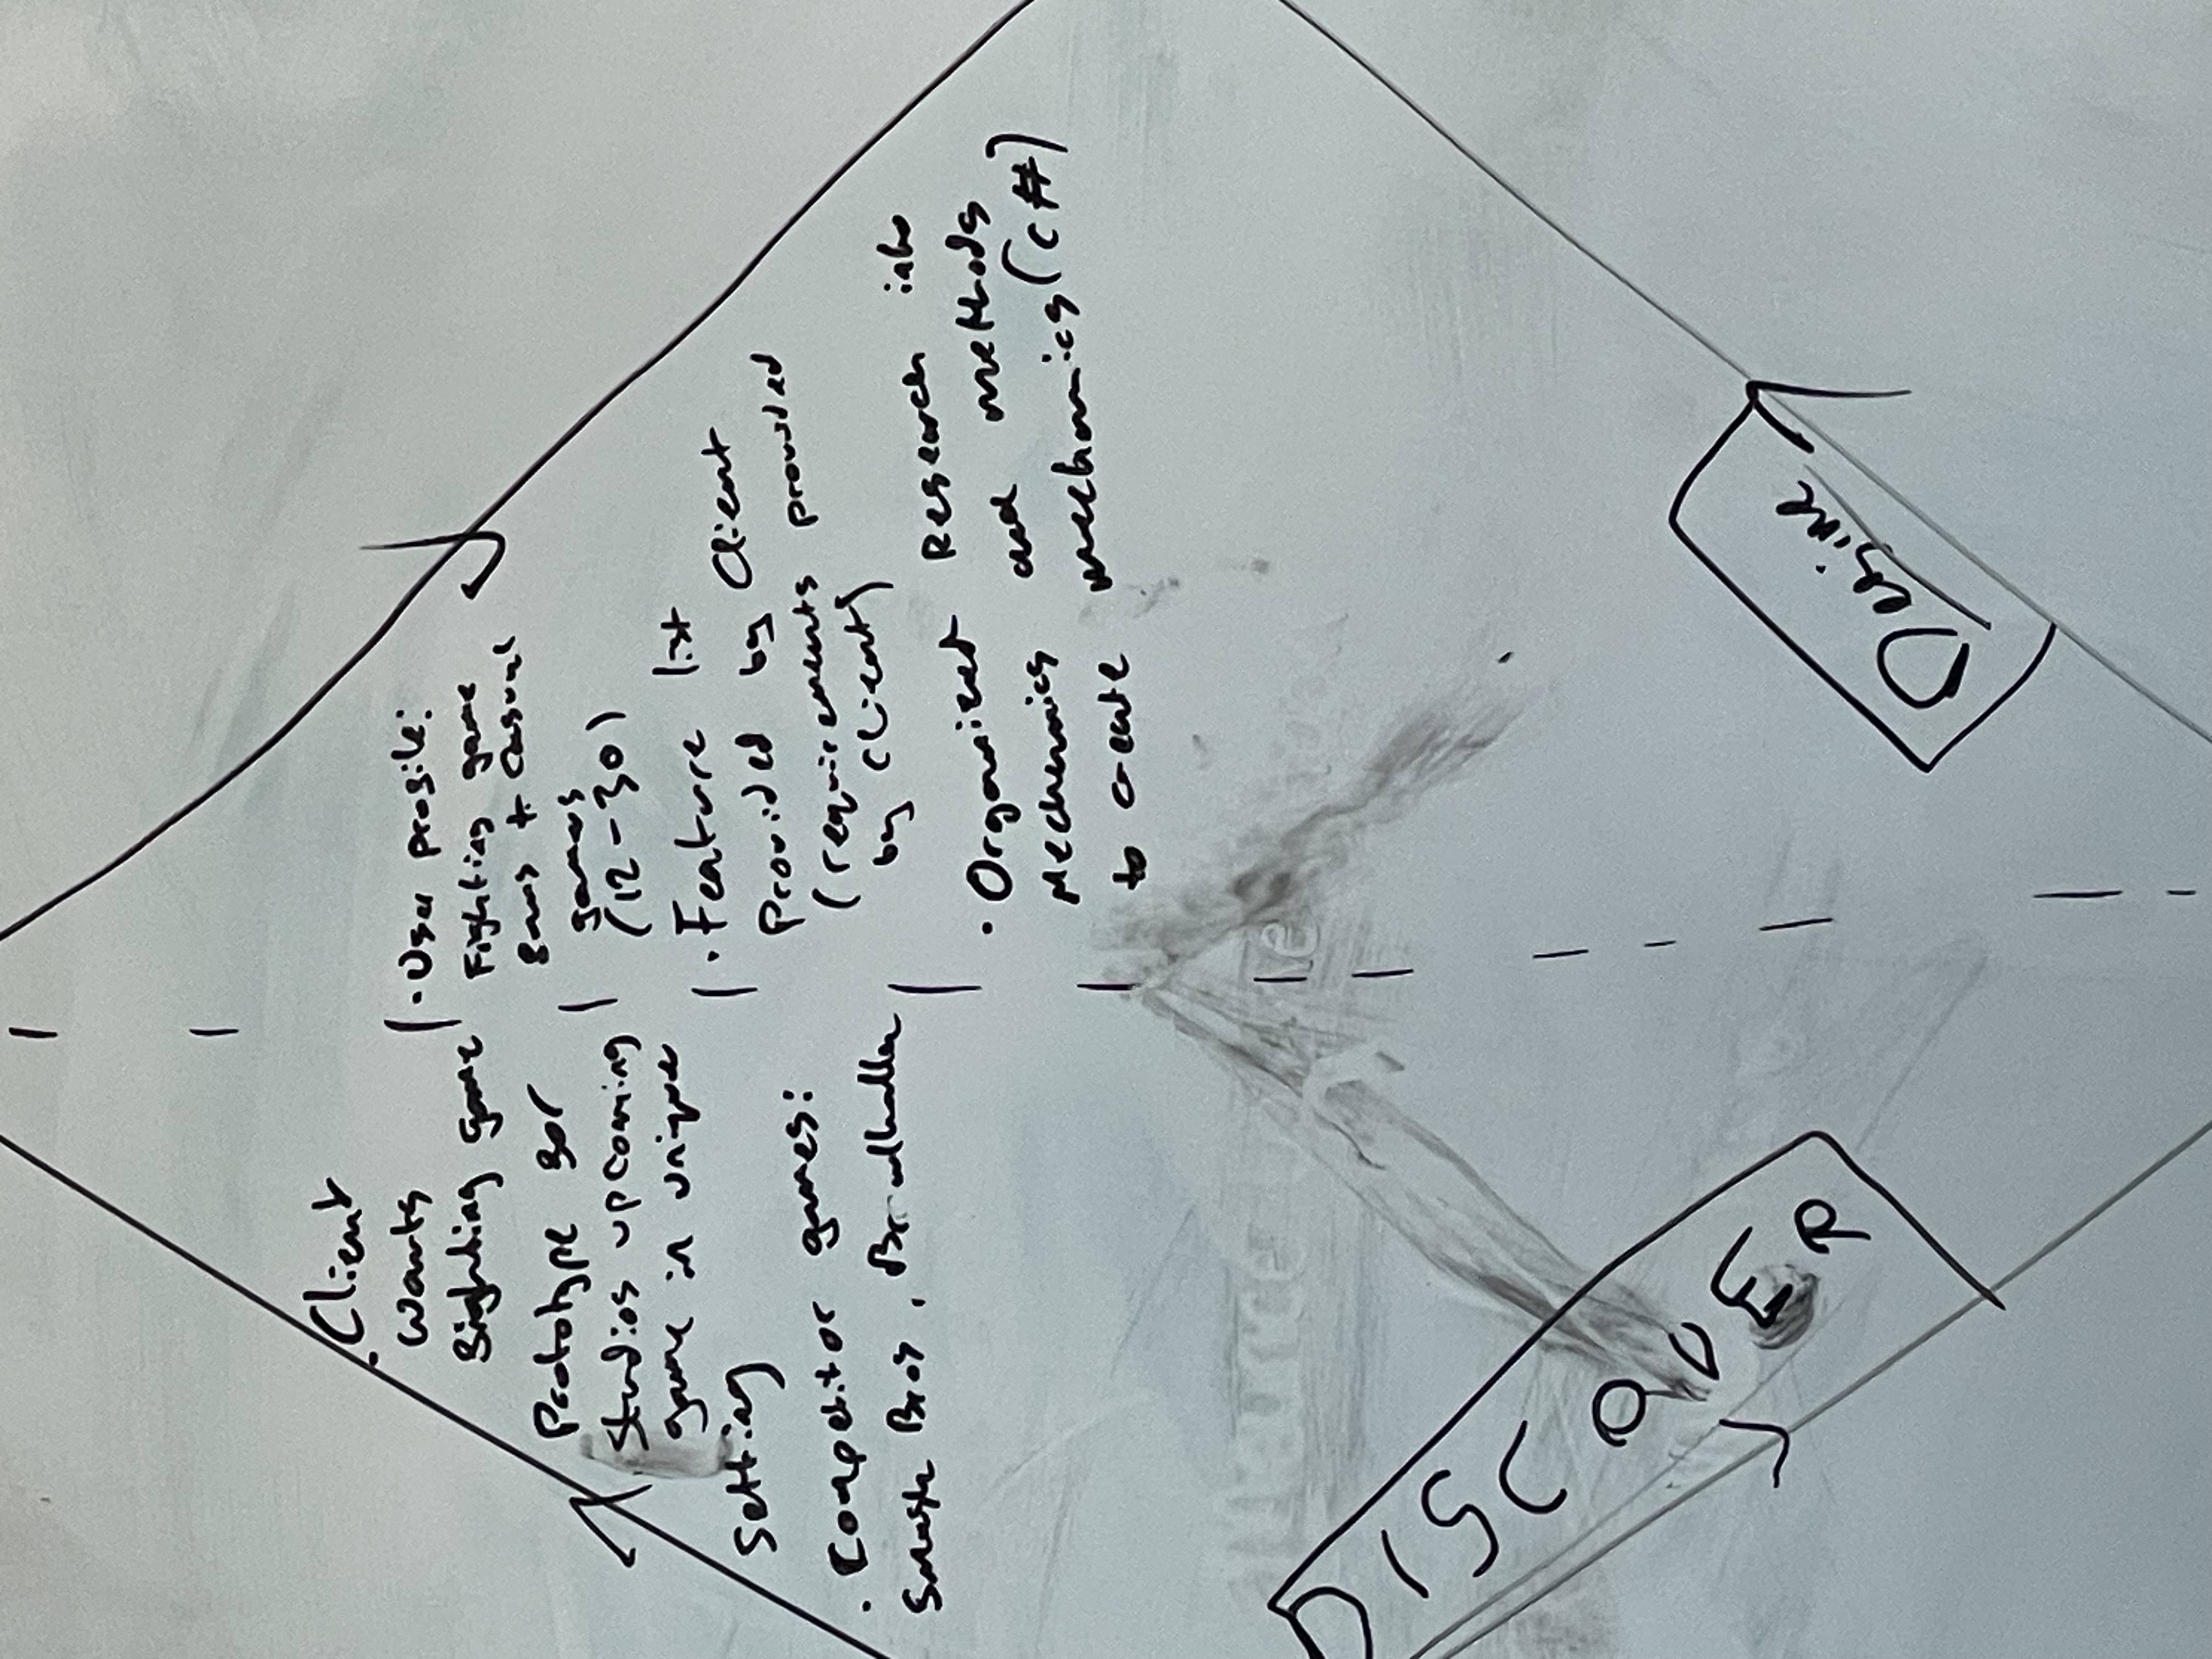 · Client
wants
fighting game
Prototype for
Studios upcoming
game in unique
Setting
· Competitor games:
Smash Bros, Brawlhalla
· User profile:
Fighting game
fans + casual
games
(12-30)
· Feature list
Provided by Client
(requirements provided
by client)
· Organized Research into
Mechanics and methods
to create mechanics (C#)
DISCOVER
Define